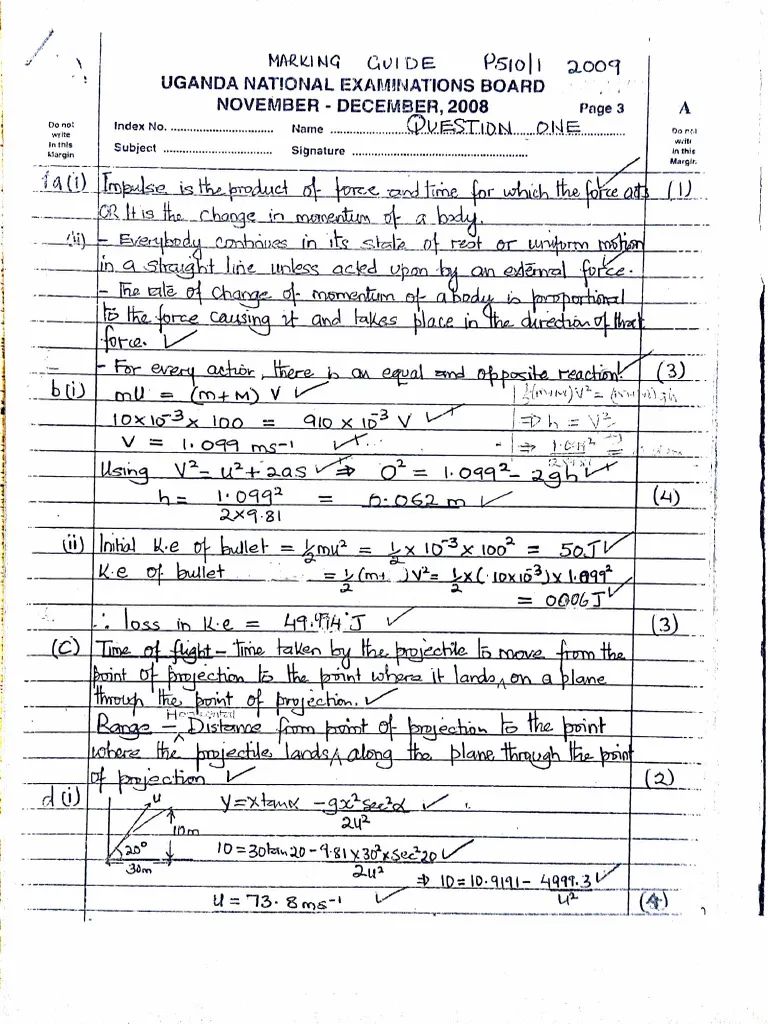 MARKING GUIDE P510/1 2009
UGANDA NATIONAL EXAMINATIONS BOARD
NOVEMBER - DECEMBER, 2008 Page 3 A
Do not write in this Margin
Index No. ............ Name ............ QUESTION ONE
Subject ............ Signature ............
Do not write in this Margin.
1a(i) Impulse is the product of force and time for which the force acts (1)
OR It is the change in momentum of a body.
(ii) – Everybody continues in its state of rest or uniform motion
in a straight line unless acted upon by an external force.
– The rate of change of momentum of a body is proportional
to the force causing it and takes place in the direction of that
force. ✓
– For every action, there is an equal and opposite reaction. (3)
b(i) mu = (m+M) V ✓
10x10⁻³ x 100 = 910 x 10⁻³ V ✓ ⇒ h = V²
V = 1.099 ms⁻¹ ✓
Using V² = u² + 2as ✓ ⇒ 0² = 1.099² – 2gh ✓
h = 1.099² / 2x9.81 = 0.062 m ✓ (4)
(ii) Initial K.e of bullet = ½mu² = ½ x 10⁻³ x 100² = 50J ✓
K.e of bullet = ½(m+ )V² = ½x(10x10⁻³) x 1.099² ✓
= 0.006J ✓
∴ loss in K.e = 49.994 J ✓ (3)
(c) Time of flight – Time taken by the projectile to move from the
point of projection to the point where it lands ^ on a plane
through the point of projection. ✓
Horizontal
Range – ^ Distance from point of projection to the point
where the projectile lands ^ along the plane through the point
of projection ✓ (2)
d(i) u y = xtanα – gx²sec²α / 2u² ✓
10m
20°
30m
10 = 30tan20 – 9.81 x 30² x sec²20 / 2u² ✓
⇒ 10 = 10.9191 – 4999.3 / u² ✓
u = 73.8 ms⁻¹ ✓ (4)